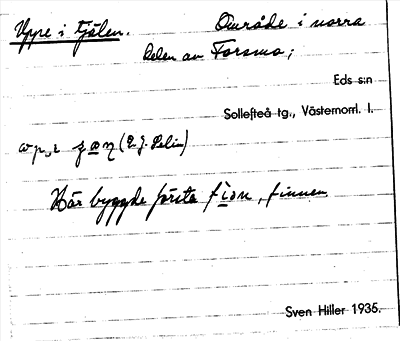 Uppe i fjälen. Område i norra
delen av Forsmo;
Eds s:n
Sollefteå tg., Västernorrl. l.
(E. J. Selin)
Här byggde första fion, finnen
Sven Hiller 1935.